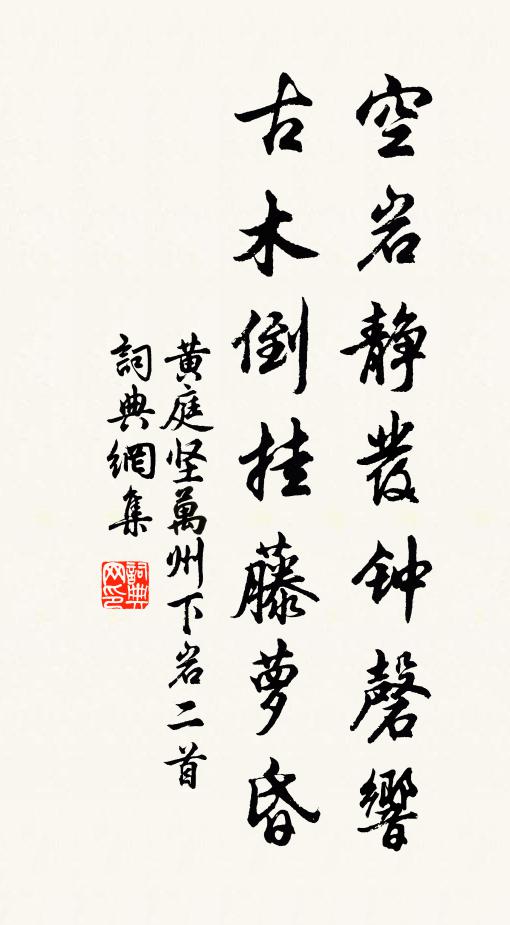 空岩静發钟磬響
古木倒挂藤萝昏
黄庭坚萬州下岩二首
詞典網集
詞典网印